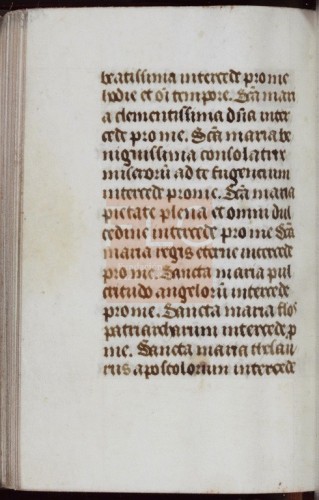 beatissima intercede pro me
hodie et oī tempore. Scā mari
a clementissima dn̄a inter
cede pro me. Scā maria be
nignissima consolatrix
miserorū ad te fugencium
intercede pro me. Scā maria
pietate plena et omni dul
cedine intercede pro me Scā
maria regis eterne intercede
pro me. Sancta maria pul
critudo angelorū intercede
pro me. Sancta maria flos
patriarcharum intercede, p̄
me. Sancta maria thesau
rus apostolorum intercede